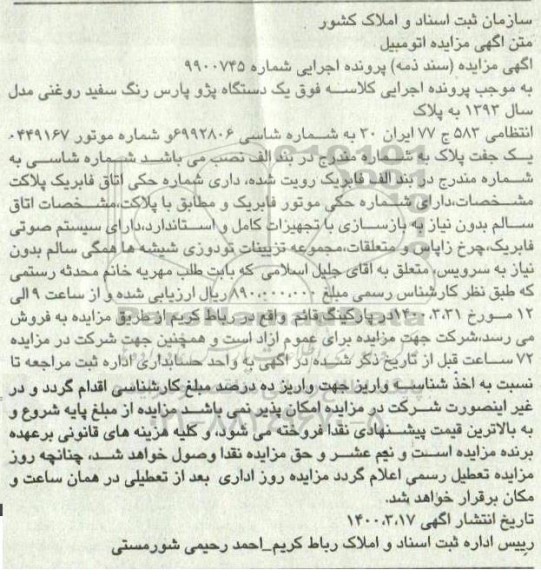 سازمان ثبت اسناد و املاک کشور
متن آگهی مزایده اتومبیل
آگهی مزایده (سند ذمه) پرونده اجرایی شماره ۹۹۰۰۷۴۵
به موجب پرونده اجرایی کلاسه فوق یک دستگاه پژو پارس رنگ سفید روغنی مدل
سال ۱۳۹۳ به پلاک
انتظامی ۵۸۳ ج ۷۷ ایران ۳۰ به شماره شاسی ۶۹۹۲۸۰۶و شماره موتور ۰۴۴۹۱۶۷
یک جفت پلاک به شماره مندرج در بند الف نصب می باشد شماره شاسی به
شماره مندرج در بند الف فابریک رویت شده، داری شماره حکی اتاق فابریک پلاکت
مشخصات،دارای شماره حکی موتور فابریک و مطابق با پلاکت،مشخصات اتاق
سالم بدون نیاز به بازسازی با تجهیزات کامل و استاندارد،دارای سیستم صوتی
فابریک،چرخ زاپاس و متعلقات،مجموعه تزیینات تودوزی شیشه ها همگی سالم بدون
نیاز به سرویس، متعلق به آقای جلیل اسلامی که بابت طلب مهریه خانم محدثه رستمی
که طبق نظر کارشناس رسمی مبلغ ۸۹۰.۰۰۰.۰۰۰ ریال ارزیابی شده و از ساعت ۹ الی
۱۲ مورخ ۱۴۰۰.۳.۳۱در پارکینگ قائم واقع در رباط کریم از طریق مزایده به فروش
می رسد،شرکت جهت مزایده برای عموم آزاد است و همچنین جهت شرکت در مزایده
۷۲ ساعت قبل از تاریخ ذکر شده در آگهی به واحد حسابداری اداره ثبت مراجعه تا
نسبت به اخذ شناسه واریز جهت واریز ده درصد مبلغ کارشناسی اقدام گردد و در
غیر اینصورت شرکت در مزایده امکان پذیر نمی باشد مزایده از مبلغ پایه شروع و
به بالاترین قیمت پیشنهادی نقدا فروخته می شود، و کلیه هزینه های قانونی برعهده
برنده مزایده است و نیم عشر و حق مزایده نقدا وصول خواهد شد، چنانچه روز
مزایده تعطیل رسمی اعلام گردد مزایده روز اداری بعد از تعطیلی در همان ساعت و
مکان برقرار خواهد شد.
تاریخ انتشار آگهی ۱۴۰۰.۳.۱۷
رییس اداره ثبت اسناد و املاک رباط کریم_احمد رحیمی شورمستی